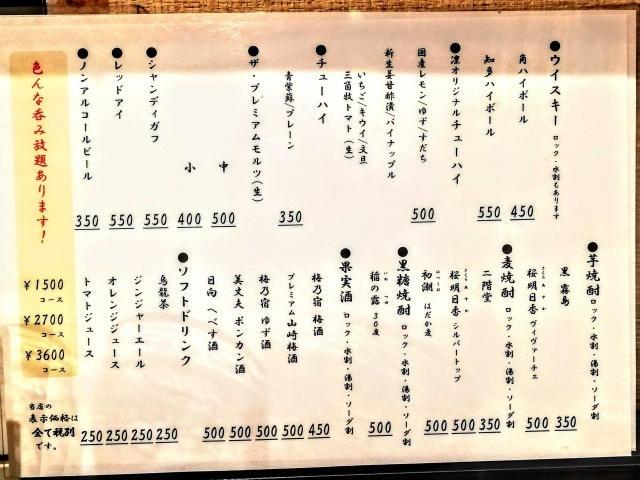 ●ウイスキー ロック・水割もあります
角ハイボール 450
知多ハイボール 550
●凛オリジナルチューハイ
国産レモン/ゆず/すだち 500
新生姜甘酢漬/パイナップル
いちご/キウイ/文旦
三箇牧トマト(生)
●チューハイ
青紫蘇/プレーン 350
●ザ・プレミアムモルツ(生)
中 500
小 400
●シャンディガフ 550
●レッドアイ 550
●ノンアルコールビール 350
●芋焼酎 ロック・水割・湯割・ソーダ割
黒霧島 350
桜明日香 ヴィヴァーチェ 500
さくらあすか
●麦焼酎 ロック・水割・湯割・ソーダ割
二階堂 350
桜明日香 シルバートップ 500
さくらあすか
初潮 はだか麦 500
はつしお
●黒糖焼酎 ロック・水割・湯割・ソーダ割
稲の露 30度 500
●果実酒 ロック・水割・湯割・ソーダ割
梅乃宿 梅酒 450
プレミアム山崎梅酒 500
梅乃宿 ゆず酒 500
美丈夫 ポンカン酒 500
日向 へべす酒 500
●ソフトドリンク
烏龍茶 250
ジンジャーエール 250
オレンジジュース 250
トマトジュース 250
色んな呑み放題あります!
¥1500
コース
¥2700
コース
¥3600
コース
当店の
表示価格は
全て税別
です。